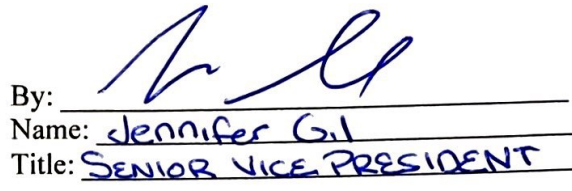 By:
Name: Jennifer Gil
Title: SENIOR VICE PRESIDENT